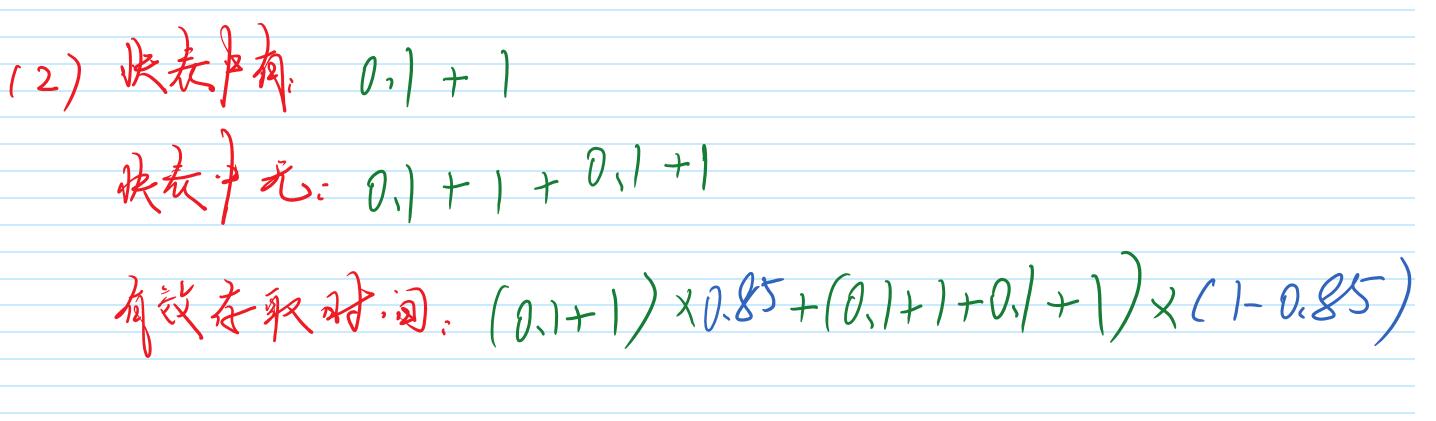 (2) 快表中有: 0.1 + 1
快表中无: 0.1 + 1 + 0.1 + 1
有效存取时间: (0.1+1)×0.85+(0.1+1+0.1+1)×(1-0.85)